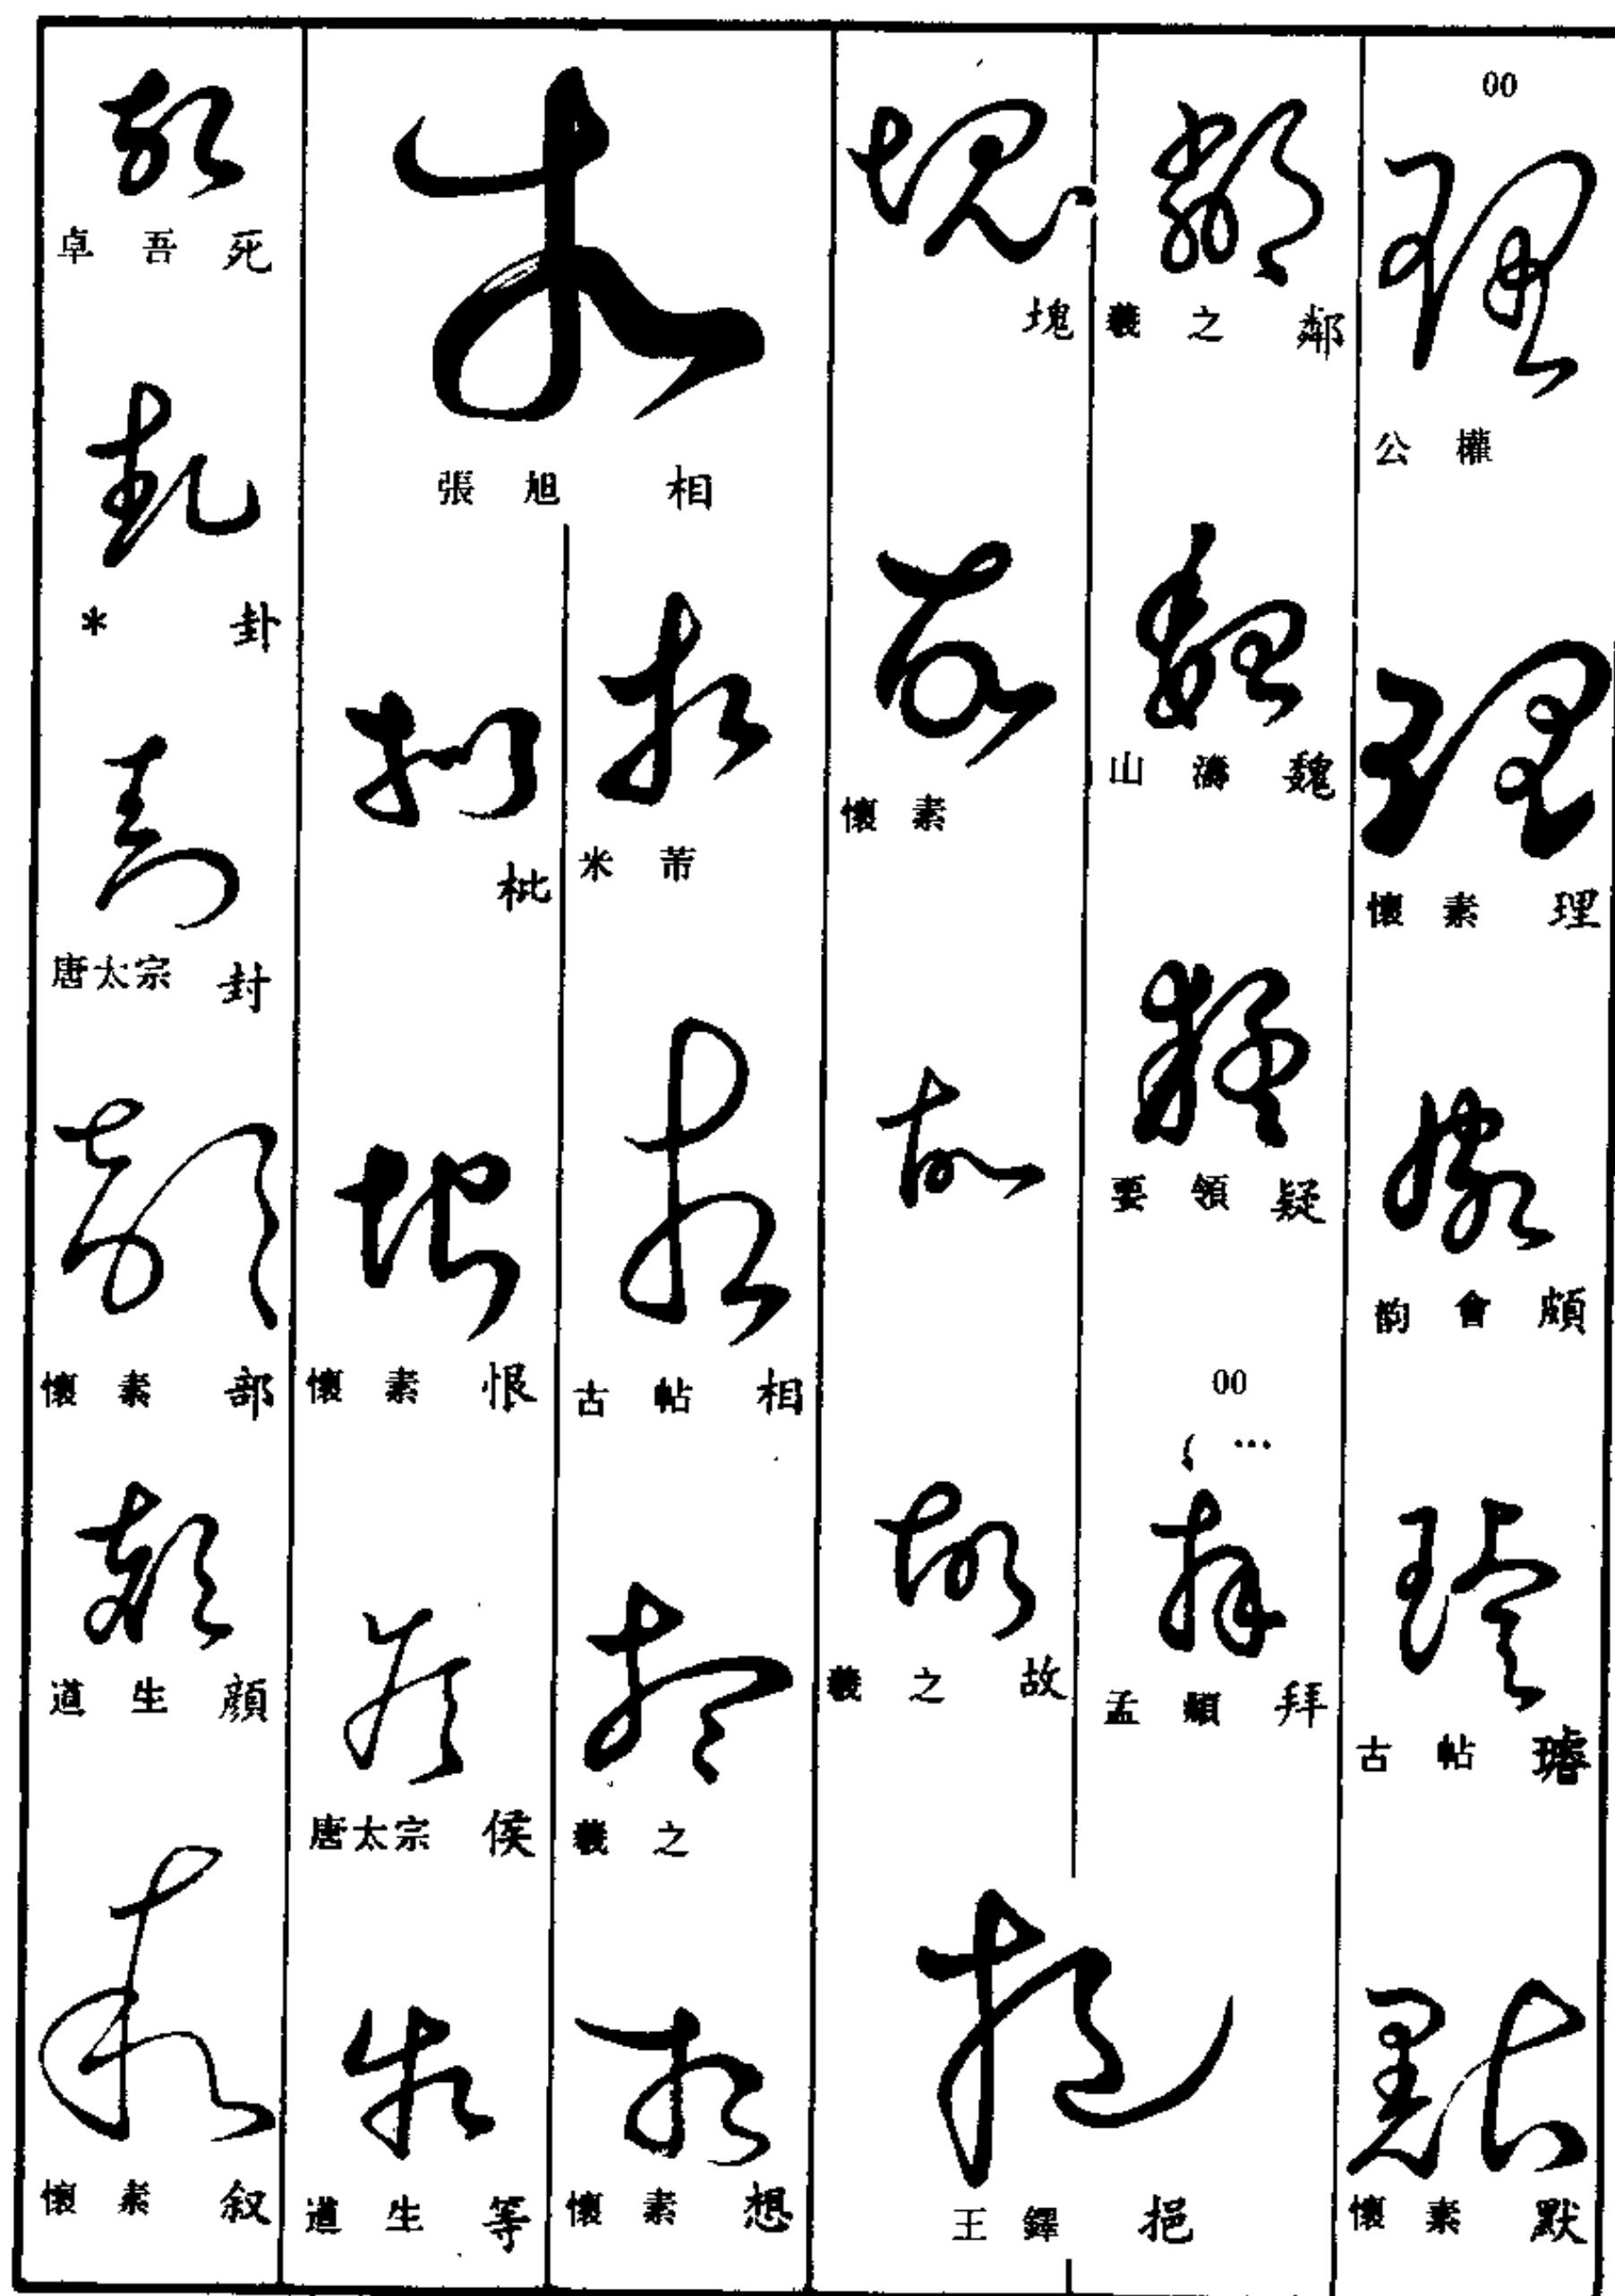 00
公權
懷素 理
韵會 頗
古帖 璿
懷素 默
羲之 鄰
山濤 魏
要領 疑
00
…
孟頫 拜
王鐸 挹
塊
懷素
羲之 故
張旭 相
米芾
古帖 相
羲之
懷素 想
枇
懷素 恨
唐太宗 侯
道生 等
卓吾 死
* 卦
唐太宗 封
懷素 部
道生 顔
懷素 叙